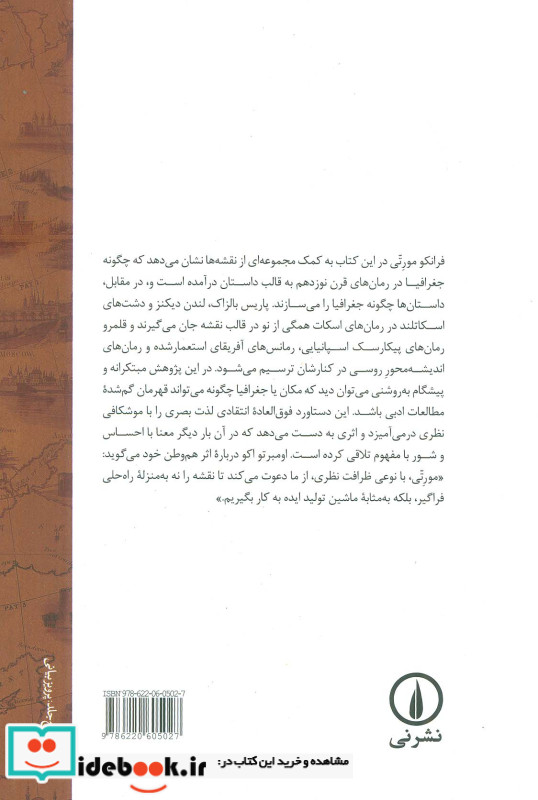 فرانکو مورتّی در این کتاب به کمک مجموعه‌ای از نقشه‌ها نشان می‌دهد که چگونه
جغرافیا در رمان‌های قرن نوزدهم به قالب داستان درآمده است و، در مقابل،
داستان‌ها چگونه جغرافیا را می‌سازند. پاریس بالزاک، لندن دیکنز و دشت‌های
اسکاتلند در رمان‌های اسکات همگی از نو در قالب نقشه جان می‌گیرند و قلمرو
رمان‌های پیکارسک اسپانیایی، رمانس‌های آفریقای استعمارشده و رمان‌های
اندیشه‌محور روسی در کنارشان ترسیم می‌شود. در این پژوهش مبتکرانه و
پیشگام به‌روشنی می‌توان دید که مکان یا جغرافیا چگونه می‌تواند قهرمان گم‌شدهٔ
مطالعات ادبی باشد. این دستاورد فوق‌العادهٔ انتقادی لذت بصری را با موشکافی
نظری درمی‌آمیزد و اثری به دست می‌دهد که در آن بار دیگر معنا با احساس
و شور با مفهوم تلاقی کرده است. اومبرتو اکو دربارهٔ اثر هم‌وطن خود می‌گوید:
«مورتّی، با نوعی ظرافت نظری، از ما دعوت می‌کند تا نقشه را نه به‌منزلهٔ راه‌حلی
فراگیر، بلکه به‌مثابهٔ ماشین تولید ایده به کار بگیریم.»
جلد: پرویز بیانی
ISBN 978-622-06-0502-7
9786220605027
نشرنی
مشاهده و خرید این کتاب در:
idebook.ir